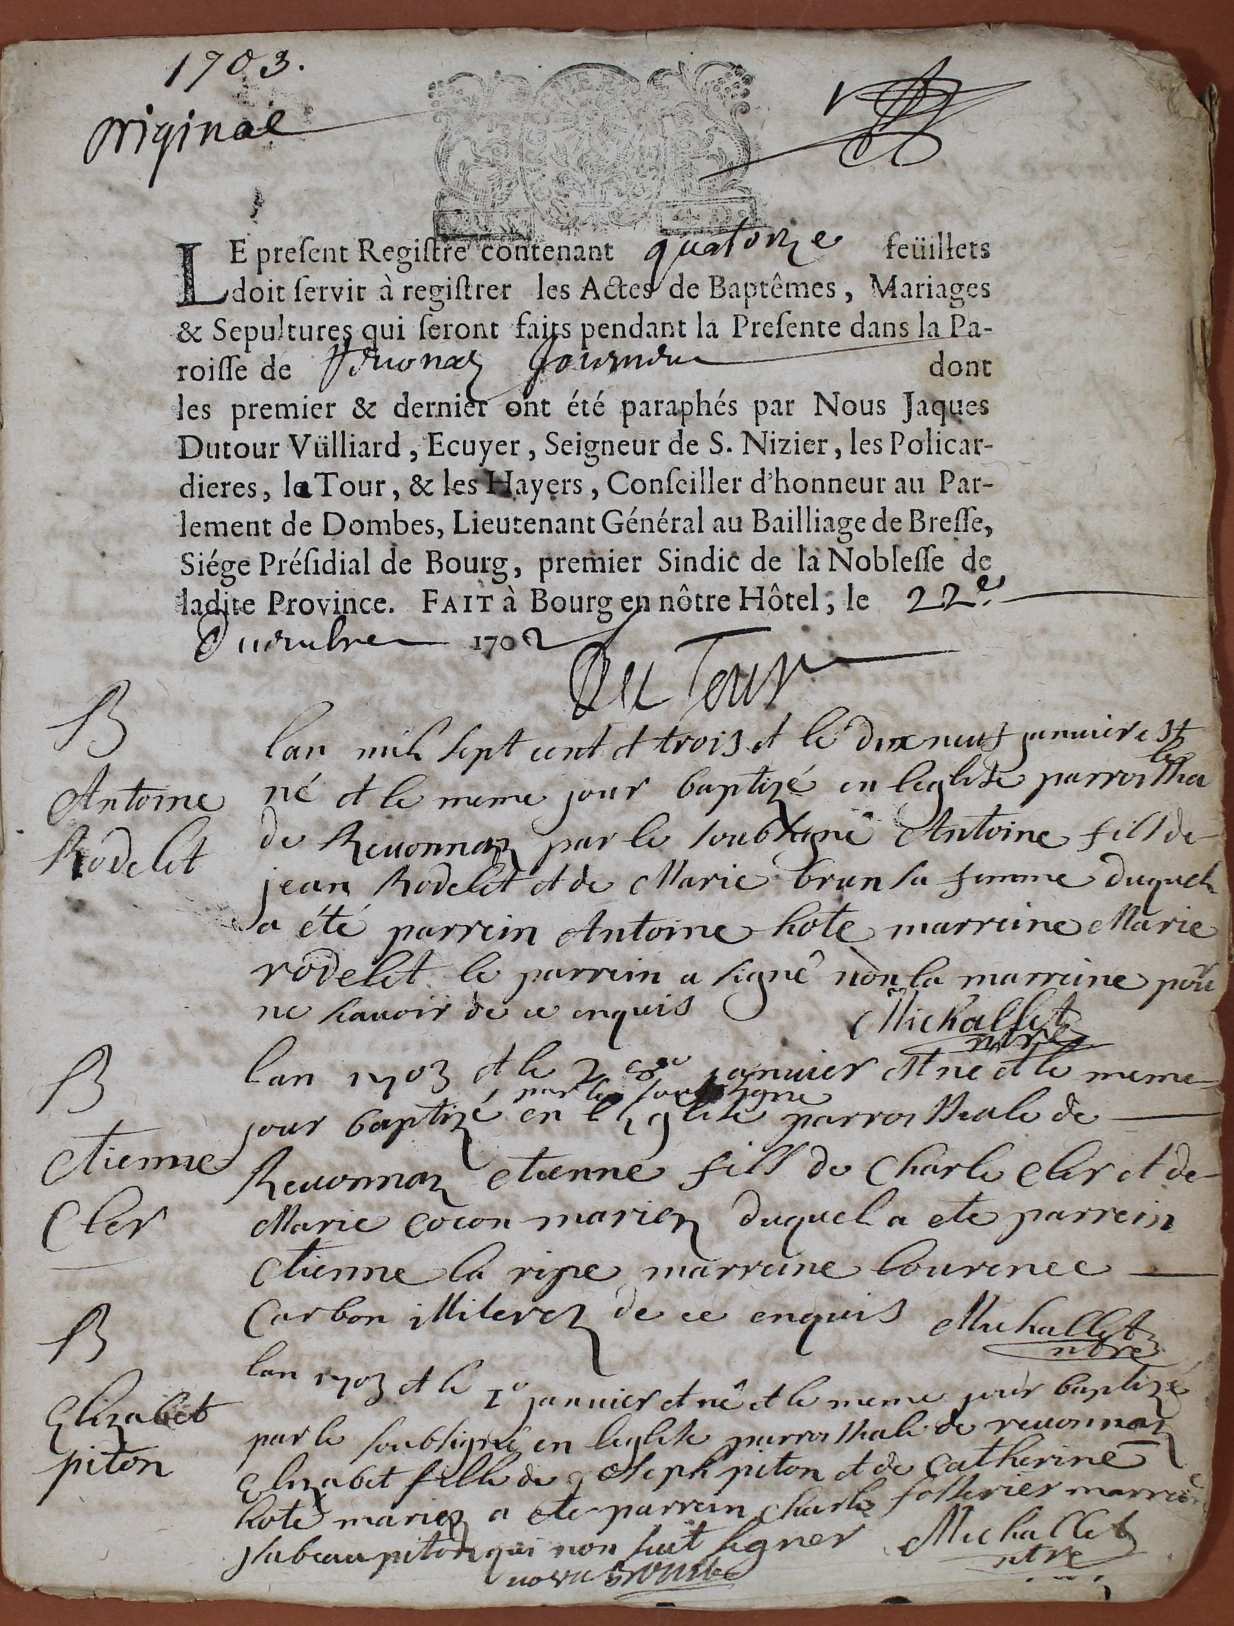 1703.
original
LE preſent Regiſtre contenant quatorze feüillets
doit ſervir à regiſtrer les Actes de Baptêmes, Mariages
& Sepultures qui ſeront faits pendant la Preſente dans la Pa-
roiſſe de dont
les premier & dernier ont été paraphés par Nous Jaques
Dutour Vülliard, Ecuyer, Seigneur de S. Nizier, les Policar-
dieres, la Tour, & les Hayers, Conſeiller d'honneur au Par-
lement de Dombes, Lieutenant Général au Bailliage de Breſſe,
Siége Préſidial de Bourg, premier Sindic de la Nobleſſe de
ladite Province. FAIT à Bourg en nôtre Hôtel, le 22e
1702
Du Tour
B
Antoine
Rodelet
lan mil sept cent et trois et le dixneuf janvier est
né et le meme jour baptizé en leglise parroissialle
de Reuonnaz par le soubsigné Antoine fills de
jean Rodelet et de Marie brun sa femme duquel
a été parrein Antoine hote marreine Marie
rodelet le parrein a signé non la marreine pour
ne scauoir de ce enquis Michallet
B
Etienne
Cler
lan 1703 et le janvier est ne et le meme
par le soubsigne
jour baptizé en leglise parroissiale de
Reuonnaz etienne fills de Charle Cler et de
Marie cocon mariez duquel a ete parrein
etienne la ripe marreine lourence
Carbon illiterez de ce enquis Michallet
B
Elizabet
piton
lan 1703 et le 1e janvier et né et le meme jour baptizé
par le soubsigné en leglise parroissiale de reuonnaz
Elizabet fille de joseph piton et de Catherine
hote mariez a ete parrein Charle marreine
piton qui non signer Michallet